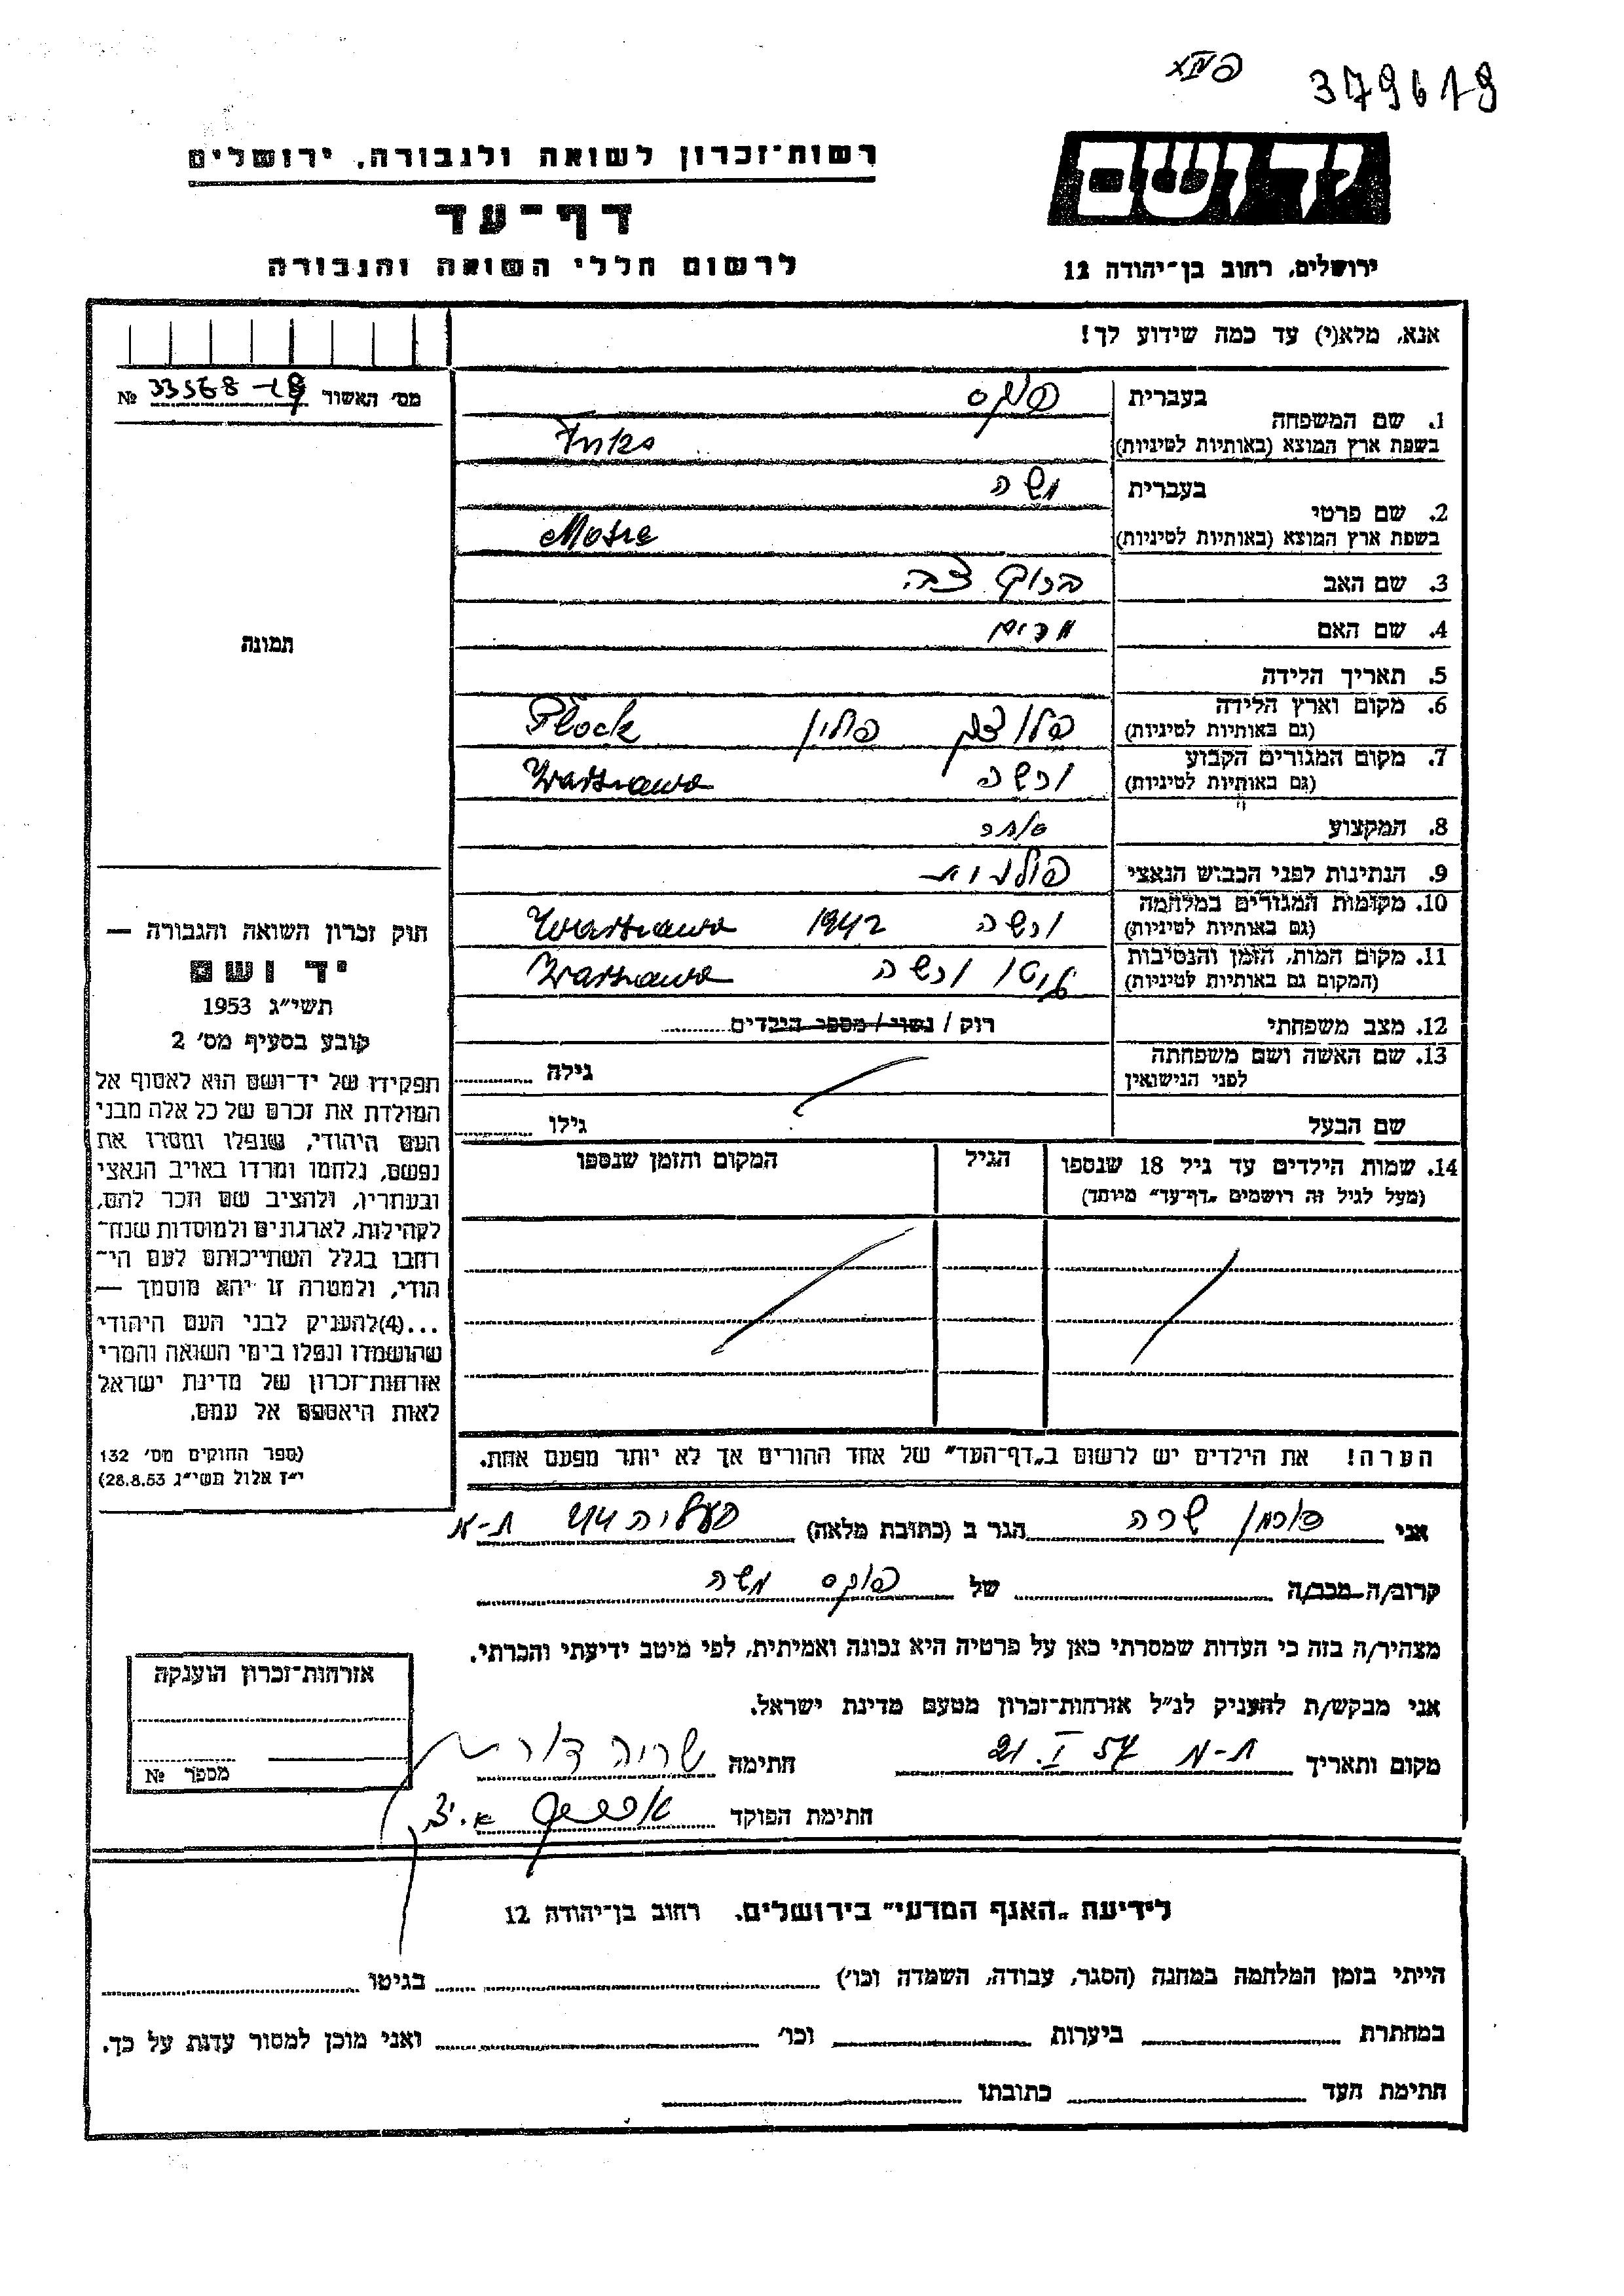 379618
רשות־זכרון לשואה ולגבורה, ירושלים
יד ושם
דף־עד
לרשום חללי השואה והגבורה
ירושלים, רחוב בן־יהודה 12
אנא, מלא(י) עד כמה שידוע לך!
מס׳ האשור № 33568
בעברית
1. שם המשפחה
בשפת ארץ המוצא (באותיות לטיניות)
פוקס
Fuks
בעברית משה
2. שם פרטי
בשפת ארץ המוצא (באותיות לטיניות) Mosze
3. שם האב ברוך צבי
4. שם האם מרים
5. תאריך הלידה
6. מקום וארץ הלידה פלוצק פולין Płock
(גם באותיות לטיניות)
7. מקום המגורים הקבוע ורשה Warszawa
(גם באותיות לטיניות)
8. המקצוע סוחר
9. הנתינות לפני הכבוש הנאצי פולנית
10. מקומות המגורים במלחמה ורשה 1942 Warszawa
(גם באותיות לטיניות)
11. מקום המות, הזמן והנסיבות גיטו ורשה Warszawa
(המקום גם באותיות לטיניות)
12. מצב משפחתי רוק / נשוי / מספר הילדים
13. שם האשה ושם משפחתה גילה
לפני הנישואין
שם הבעל גילו
14. שמות הילדים עד גיל 18 שנספו הגיל המקום והזמן שנספו
(מעל לגיל זה רושמים „דף־עד״ מיוחד)
הערה! את הילדים יש לרשום ב„דף־העד״ של אחד ההורים אך לא יותר מפעם אחת.
תמונה
חוק זכרון השואה והגבורה —
יד ושם
תשי״ג 1953
קובע בסעיף מס׳ 2
תפקידו של יד־ושם הוא לאסוף אל
המולדת את זכרם של כל אלה מבני
העם היהודי, שנפלו ומסרו את
נפשם, נלחמו ומרדו באויב הנאצי
ובעוזריו, ולהציב שם וזכר להם,
לקהילות, לארגונים ולמוסדות שנח־
רחבו בגלל השתייכותם לעם הי־
הודי, ולמטרה זו יהא מוסמך —
...(4)להעניק לבני העם היהודי
שהושמדו ונפלו בימי השואה והמרי
אזרחות־זכרון של מדינת ישראל
לאות היאספם אל עמם.
(ספר החוקים מס׳ 132
י״ז אלול תשי״ג 28.8.53)
אני שרה הגר ב (כתובת מלאה) העליה 44 ת-א
קרוב/ה מכר/ה של פוקס משה
מצהיר/ה בזה כי העדות שמסרתי כאן על פרטיה היא נכונה ואמיתית, לפי מיטב ידיעתי והכרתי.
אני מבקש/ת להעניק לנ״ל אזרחות־זכרון מטעם מדינת ישראל.
מקום ותאריך ת-א 21.I.57 חתימה
חתימת הפוקד
אזרחות־זכרון הוענקה
מספר №
לידיעת „האגף המדעי״ בירושלים, רחוב בן־יהודה 12
הייתי בזמן המלחמה במחנה (הסגר, עבודה, השמדה וכו׳) בגיטו
במחתרת ביערות וכו׳ ואני מוכן למסור עדות על כך.
חתימת העד כתובתו